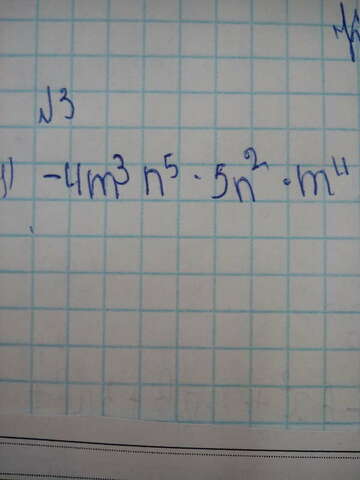 №3
1) -4m³n⁵ · 5n² · m⁴